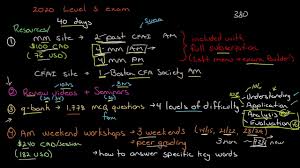 2020 Level 3 exam
40 days
380
Resources/
① mm site → 2-past CFAI AM
$100 CAD
(75 USD)
4 mm AM
4 mm PM
included with
full subscription
(Left menu →
CFAI site → 1 Boston CFA Society AM
② Review videos + Seminars
③ q-bank - 1,778 MCQ questions → 4 levels of difficulty
Understanding
Application
Analysis
Evaluation
④ AM weekend workshops → 3 weekends
$240 CAD/session
(182 USD)
→ peer grading
→ how to answer specific key words